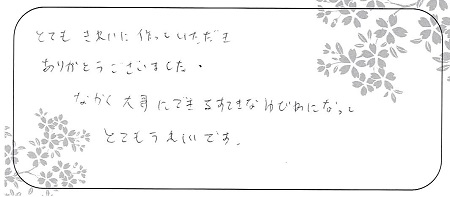 とても きれいに 作っていただき
ありがとうございました。
ながく大事にできるすてきなゆびわになって
とてもうれしいです。